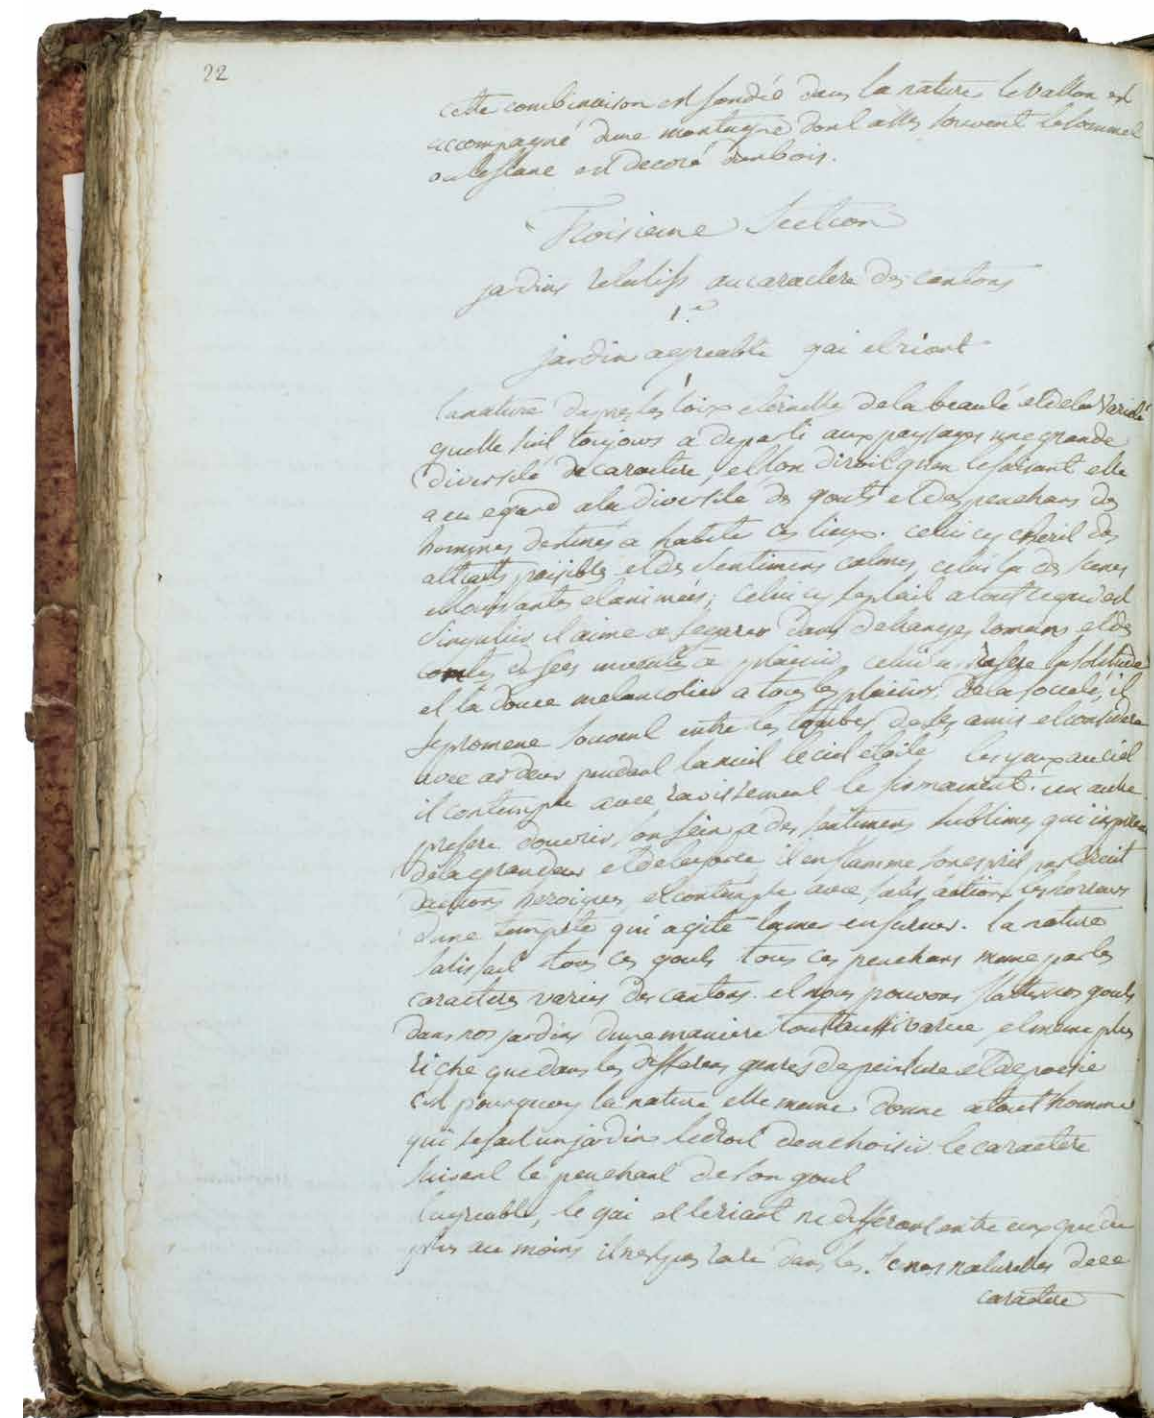 22
cette combinaison est fondée dans la nature le vallon est
accompagné dune montagne dont asses souvent le sommet
ou le flanc est decoré dun bois.
Troisieme Section
jardins relatifs au caractere des cantons
1.°
jardin agreable gai et riant
la nature dapres les loix eternelles de la beauté et de la varieté
quelle suit toujours a departi aux paysages une grande
diversité de caractere, et lon diroit quen le faisant elle
a eu egard a la diversité des gouts et des penchans des
hommes destinés a habiter ces lieux. celui cy cherit des
attraits paisibles et des sentimens calmes, celui la des scenes
eblouissantes et animées; celui cy se plait a tout ce qui est
singulier il aime a segarer dans detranges romans et des
contes de fées inventés a plaisir, celui la prefere la solitude
et la douce melancolie a tous les plaisirs de la societé, il
se promene souvent entre les tombes de ses amis et considere
avec ardeur pendant la nuit le ciel etoilé les yeux au ciel
il contemple avec ravissement le firmament. un autre
prefere douvrir son sein a des sentimens sublimes qui inspirent
de la grandeur et de la force, il enflamme son esprit par le recit
dactions heroiques, et contemple avec satisfaction les horreurs
dune tempete qui agite la mer en fureur. la nature
satisfait tous ces gouts tous ces penchans meme par les
caracteres variés des cantons. et nous pouvons flatter nos gouts
dans nos jardins dune maniere tout aussi variée, et meme plus
riche que dans les differens genres de peinture et de poesie
cest pourquoy la nature elle meme donne a tout homme
qui se fait un jardin le droit den choisir le caractere
suivant le penchant de son gout
lagreable, le gai et le riant ne differant entre eux que du
plus au moins il nest pas rare dans les scenes naturelles de ce
caractere